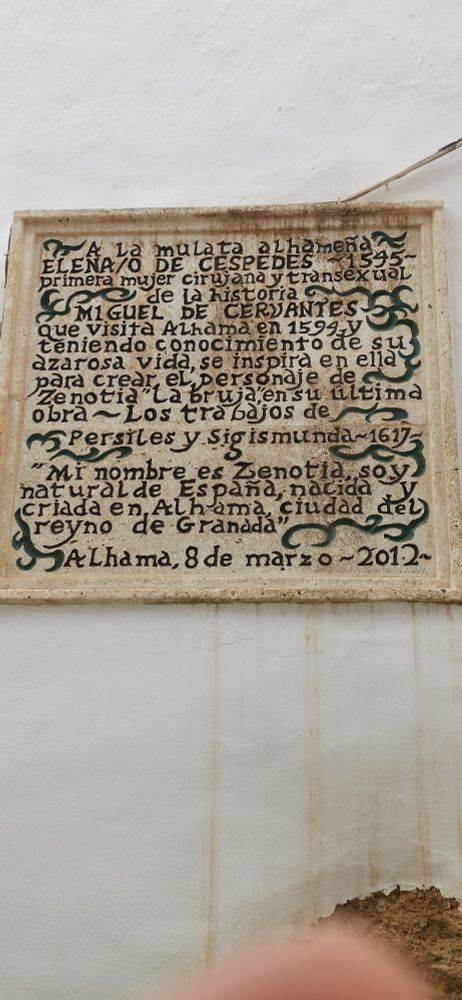 A la mulata alhameña
ELENA/O DE CESPEDES ~1545~
primera mujer cirujana y transexual
de la historia
MIGUEL DE CERVANTES
que visita Alhama en 1594, y
teniendo conocimiento de su
azarosa vida, se inspira en ella
para crear el personaje de
Zenotia "La bruja", en su última
obra ~ Los trabajos de
Persiles y Sigismunda~1617~
"Mi nombre es Zenotia, soy
natural de España, nacida y
criada en Alhama, ciudad del
reyno de Granada"
Alhama, 8 de marzo ~2012~